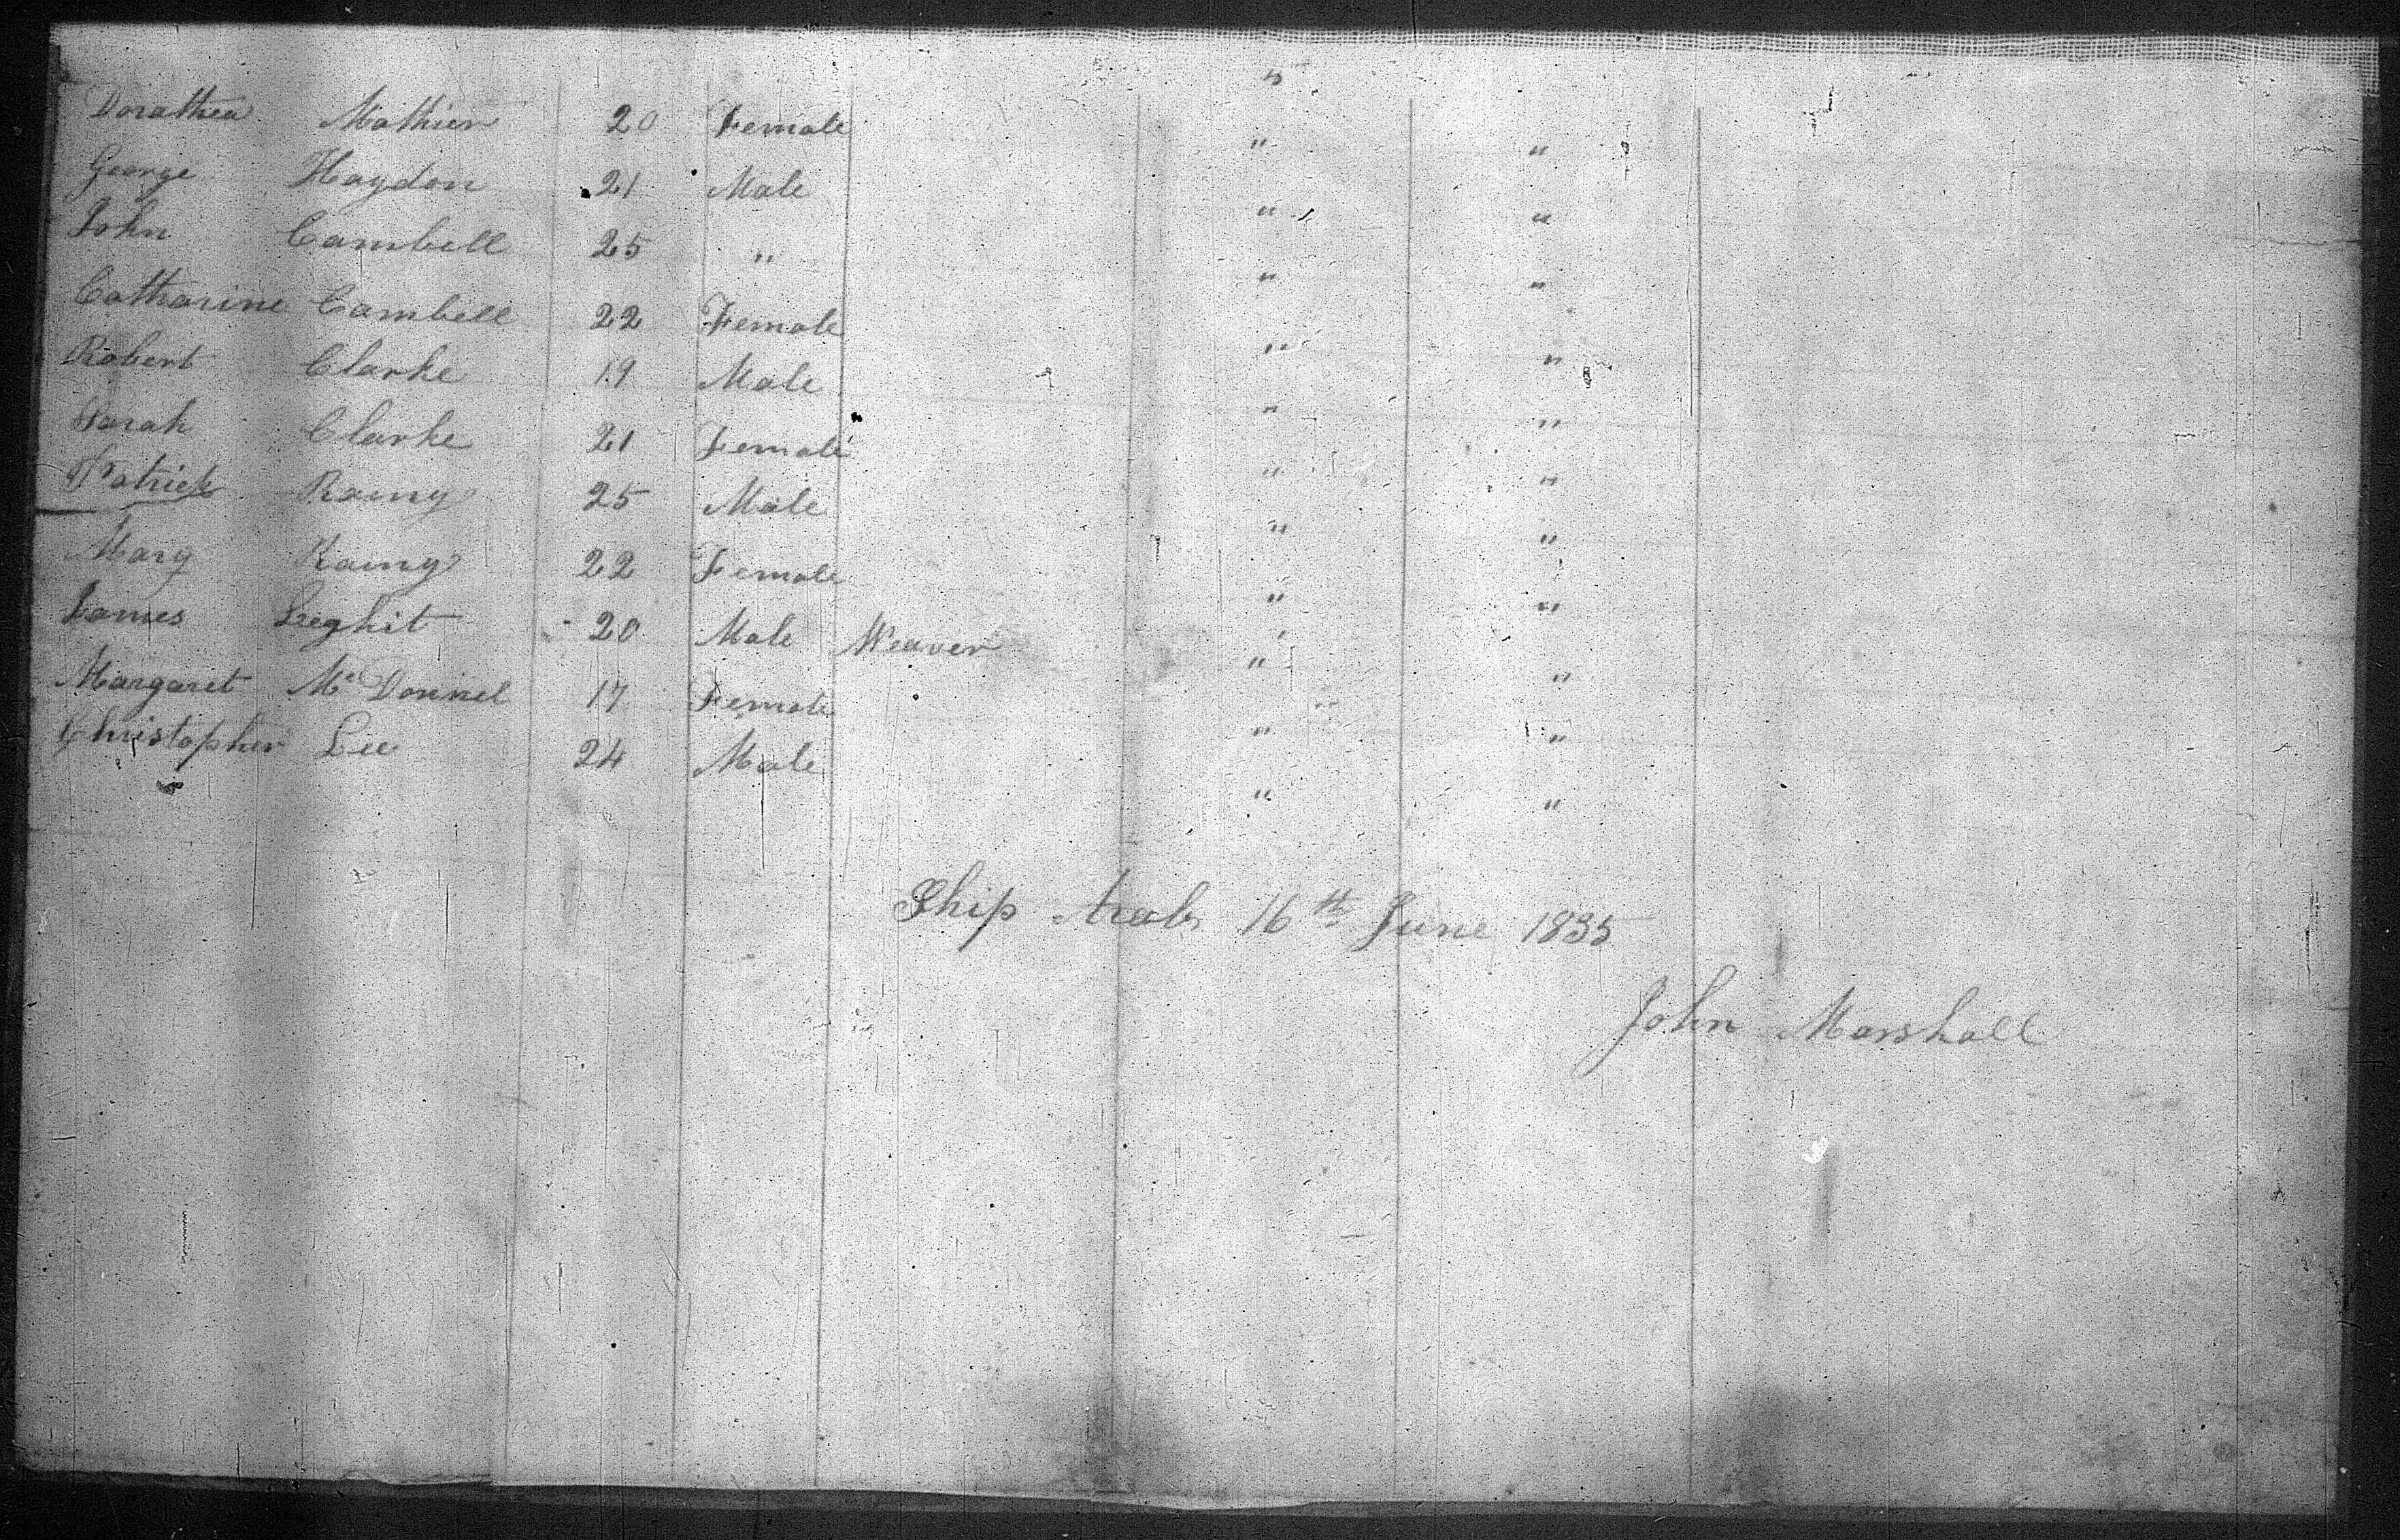 Dorathea Mathier 20 Female " "
George Haydon 21 Male " "
John Cambell 25 " " "
Catharine Cambell 22 Female " "
Robert Clarke 19 Male " "
Sarah Clarke 21 Female " "
Patrick Rainy 25 Male " "
Mary Rainy 22 Female " "
James 20 Male Weaver " "
Margaret Mc Donnel 17 Female " "
Christopher Lee 24 Male " "
Ship Arab 16th June 1835
John Marshall